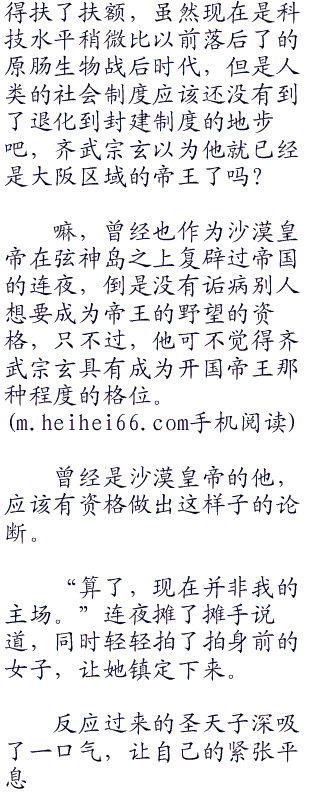 得扶了扶额，虽然现在是科
技水平稍微比以前落后了的
原肠生物战后时代，但是人
类的社会制度应该还没有到
了退化到封建制度的地步
吧，齐武宗玄以为他就已经
是大阪区域的帝王了吗？
嘛，曾经也作为沙漠皇
帝在弦神岛之上复辟过帝国
的连夜，倒是没有诟病别人
想要成为帝王的野望的资
格，只不过，他可不觉得齐
武宗玄具有成为开国帝王那
种程度的格位。
(m.heihei66.com手机阅读)
曾经是沙漠皇帝的他，
应该有资格做出这样子的论
断。
“算了，现在并非我的
主场。”连夜摊了摊手说
道，同时轻轻拍了拍身前的
女子，让她镇定下来。
反应过来的圣天子深吸
了一口气，让自己的紧张平
息